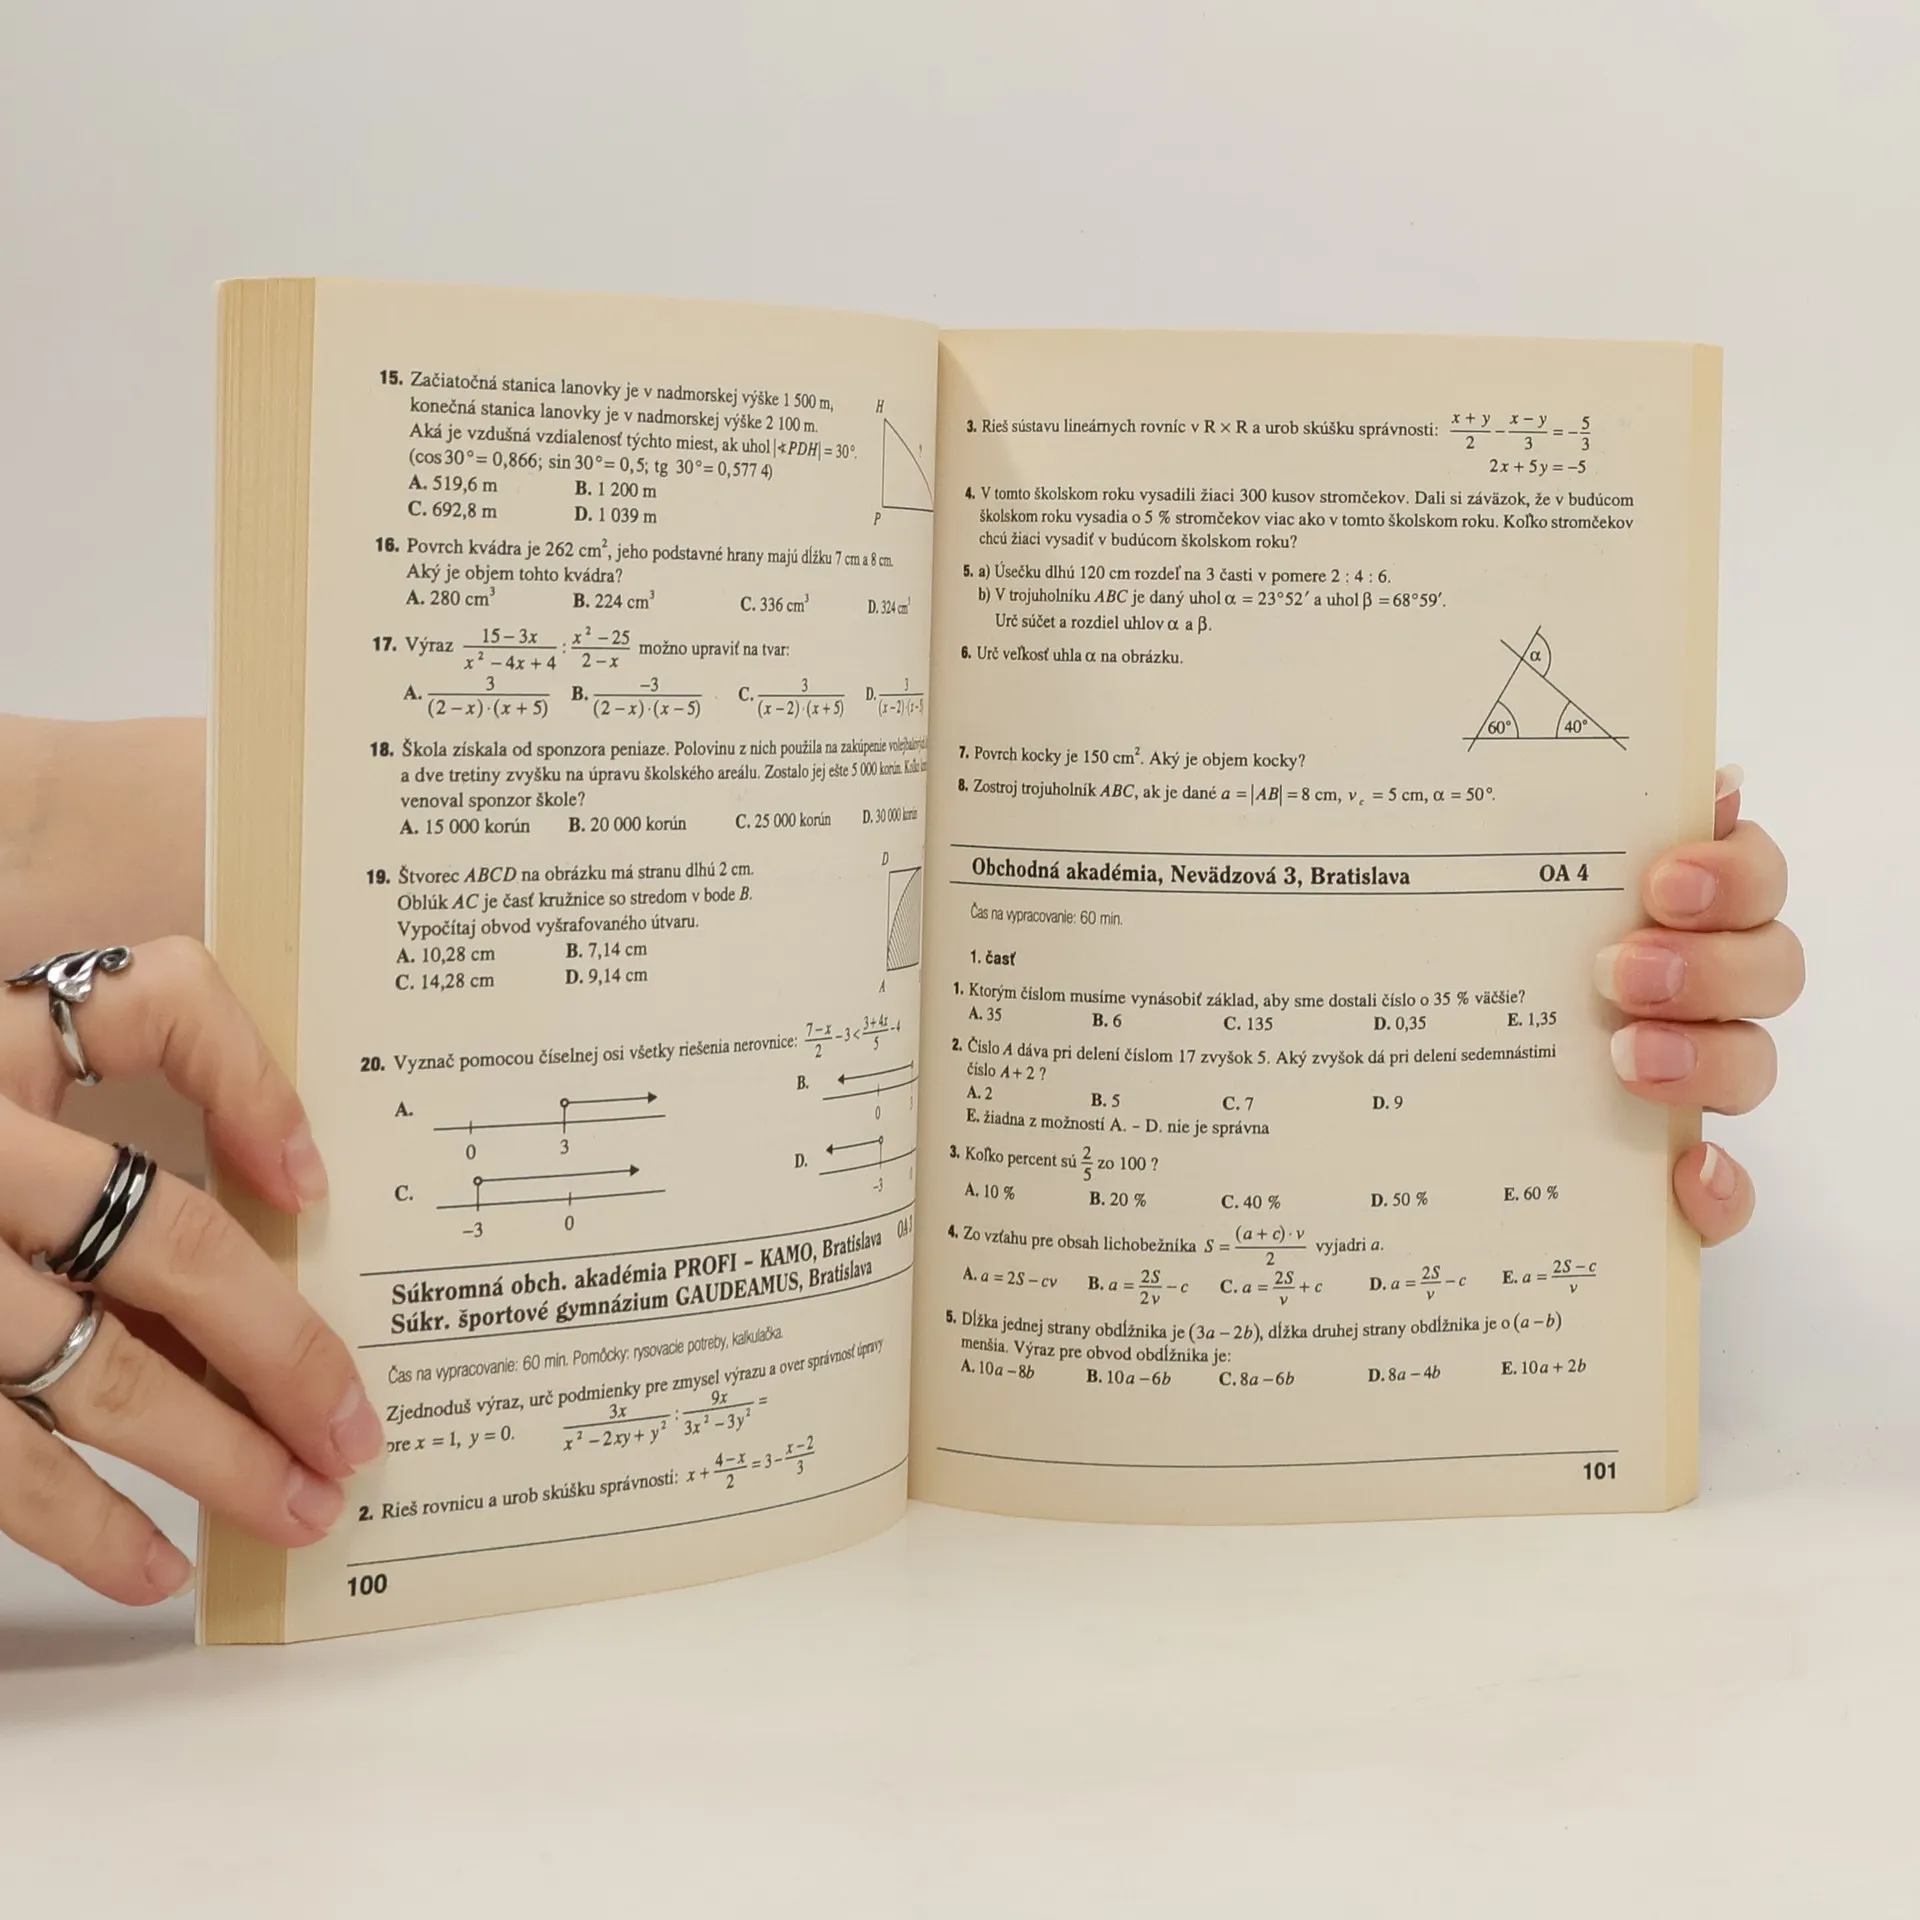 15. Začiatočná stanica lanovky je v nadmorskej výške 1 500 m,
konečná stanica lanovky je v nadmorskej výške 2 100 m.
Aká je vzdušná vzdialenosť týchto miest, ak uhol |∢PDH| = 30°.
(cos 30°= 0,866; sin 30°= 0,5; tg 30°= 0,577 4)
A. 519,6 m B. 1 200 m
C. 692,8 m D. 1 039 m
H
P
16. Povrch kvádra je 262 cm², jeho podstavné hrany majú dĺžku 7 cm a 8 cm.
Aký je objem tohto kvádra?
A. 280 cm³ B. 224 cm³ C. 336 cm³ D. 324 cm³
17. Výraz (15 – 3x)/(x² – 4x + 4) : (x² – 25)/(2 – x) možno upraviť na tvar:
A. 3/((2 – x)·(x + 5)) B. –3/((2 – x)·(x – 5)) C. 3/((x – 2)·(x + 5)) D. 3/((x – 2)·(x – 5
18. Škola získala od sponzora peniaze. Polovinu z nich použila na zakúpenie
a dve tretiny zvyšku na úpravu školského areálu. Zostalo jej ešte 5 000 korún. Koľko
venoval sponzor škole?
A. 15 000 korún B. 20 000 korún C. 25 000 korún D. 30 000 korún
19. Štvorec ABCD na obrázku má stranu dlhú 2 cm.
Oblúk AC je časť kružnice so stredom v bode B.
Vypočítaj obvod vyšrafovaného útvaru.
A. 10,28 cm B. 7,14 cm
C. 14,28 cm D. 9,14 cm
D
A
20. Vyznač pomocou číselnej osi všetky riešenia nerovnice: (7 – x)/2 – 3 < (3 + 4x)/5 – 4
A. B.
0 3 0 3
C. D.
–3 0 –3
Súkromná obch. akadémia PROFI – KAMO, Bratislava OA 3
Súkr. športové gymnázium GAUDEAMUS, Bratislava
Čas na vypracovanie: 60 min. Pomôcky: rysovacie potreby, kalkulačka.
Zjednoduš výraz, urč podmienky pre zmysel výrazu a over správnosť úpravy
pre x = 1, y = 0. 3x/(x² – 2xy + y²) : 9x/(3x² – 3y²) =
2. Rieš rovnicu a urob skúšku správnosti: x + (4 – x)/2 = 3 – (x – 2)/3
100
3. Rieš sústavu lineárnych rovníc v R × R a urob skúšku správnosti: (x + y)/2 – (x – y)/3 = –5/3
2x + 5y = –5
4. V tomto školskom roku vysadili žiaci 300 kusov stromčekov. Dali si záväzok, že v budúcom
školskom roku vysadia o 5 % stromčekov viac ako v tomto školskom roku. Koľko stromčekov
chcú žiaci vysadiť v budúcom školskom roku?
5. a) Úsečku dlhú 120 cm rozdeľ na 3 časti v pomere 2 : 4 : 6.
b) V trojuholníku ABC je daný uhol α = 23°52′ a uhol β = 68°59′.
Urč súčet a rozdiel uhlov α a β.
6. Urč veľkosť uhla α na obrázku.
α
60° 40°
7. Povrch kocky je 150 cm². Aký je objem kocky?
8. Zostroj trojuholník ABC, ak je dané a = |AB| = 8 cm, v_c = 5 cm, α = 50°.
Obchodná akadémia, Nevädzová 3, Bratislava OA 4
Čas na vypracovanie: 60 min.
1. časť
1. Ktorým číslom musíme vynásobiť základ, aby sme dostali číslo o 35 % väčšie?
A. 35 B. 6 C. 135 D. 0,35 E. 1,35
2. Číslo A dáva pri delení číslom 17 zvyšok 5. Aký zvyšok dá pri delení sedemnástimi
číslo A + 2 ?
A. 2 B. 5 C. 7 D. 9
E. žiadna z možností A. – D. nie je správna
3. Koľko percent sú 2/5 zo 100 ?
A. 10 % B. 20 % C. 40 % D. 50 % E. 60 %
4. Zo vzťahu pre obsah lichobežníka S = ((a + c)·v)/2 vyjadri a.
A. a = 2S – cv B. a = 2S/2v – c C. a = 2S/v + c D. a = 2S/v – c E. a = (2S – c)/v
5. Dĺžka jednej strany obdĺžnika je (3a – 2b), dĺžka druhej strany obdĺžnika je o (a – b)
menšia. Výraz pre obvod obdĺžnika je:
A. 10a – 8b B. 10a – 6b C. 8a – 6b D. 8a – 4b E. 10a + 2b
101